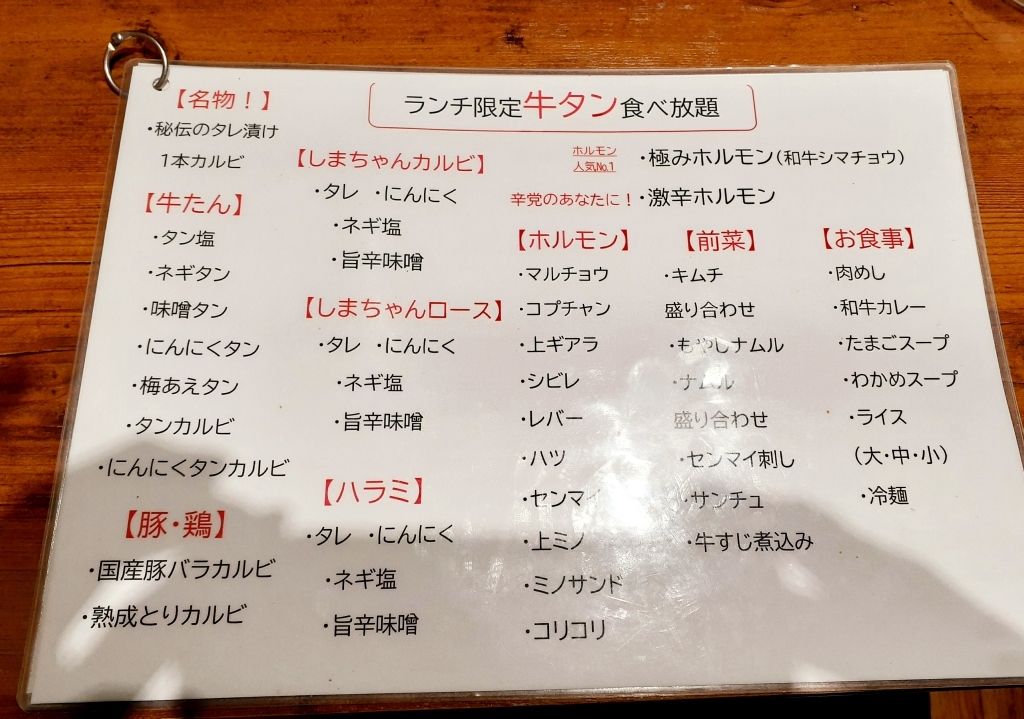 ランチ限定牛タン食べ放題
【名物！】
・秘伝のタレ漬け
1本カルビ
【牛たん】
・タン塩
・ネギタン
・味噌タン
・にんにくタン
・梅あえタン
・タンカルビ
・にんにくタンカルビ
【豚・鶏】
・国産豚バラカルビ
・熟成とりカルビ
【しまちゃんカルビ】
・タレ ・にんにく
・ネギ塩
・旨辛味噌
【しまちゃんロース】
・タレ ・にんにく
・ネギ塩
・旨辛味噌
【ハラミ】
・タレ ・にんにく
・ネギ塩
・旨辛味噌
ホルモン
人気No.1
・極みホルモン（和牛シマチョウ）
辛党のあなたに！・激辛ホルモン
【ホルモン】
・マルチョウ
・コプチャン
・上ギアラ
・シビレ
・レバー
・ハツ
・センマイ
・上ミノ
・ミノサンド
・コリコリ
【前菜】
・キムチ
盛り合わせ
・もやしナムル
・ナムル
盛り合わせ
・センマイ刺し
・サンチュ
・牛すじ煮込み
【お食事】
・肉めし
・和牛カレー
・たまごスープ
・わかめスープ
・ライス
（大・中・小）
・冷麺